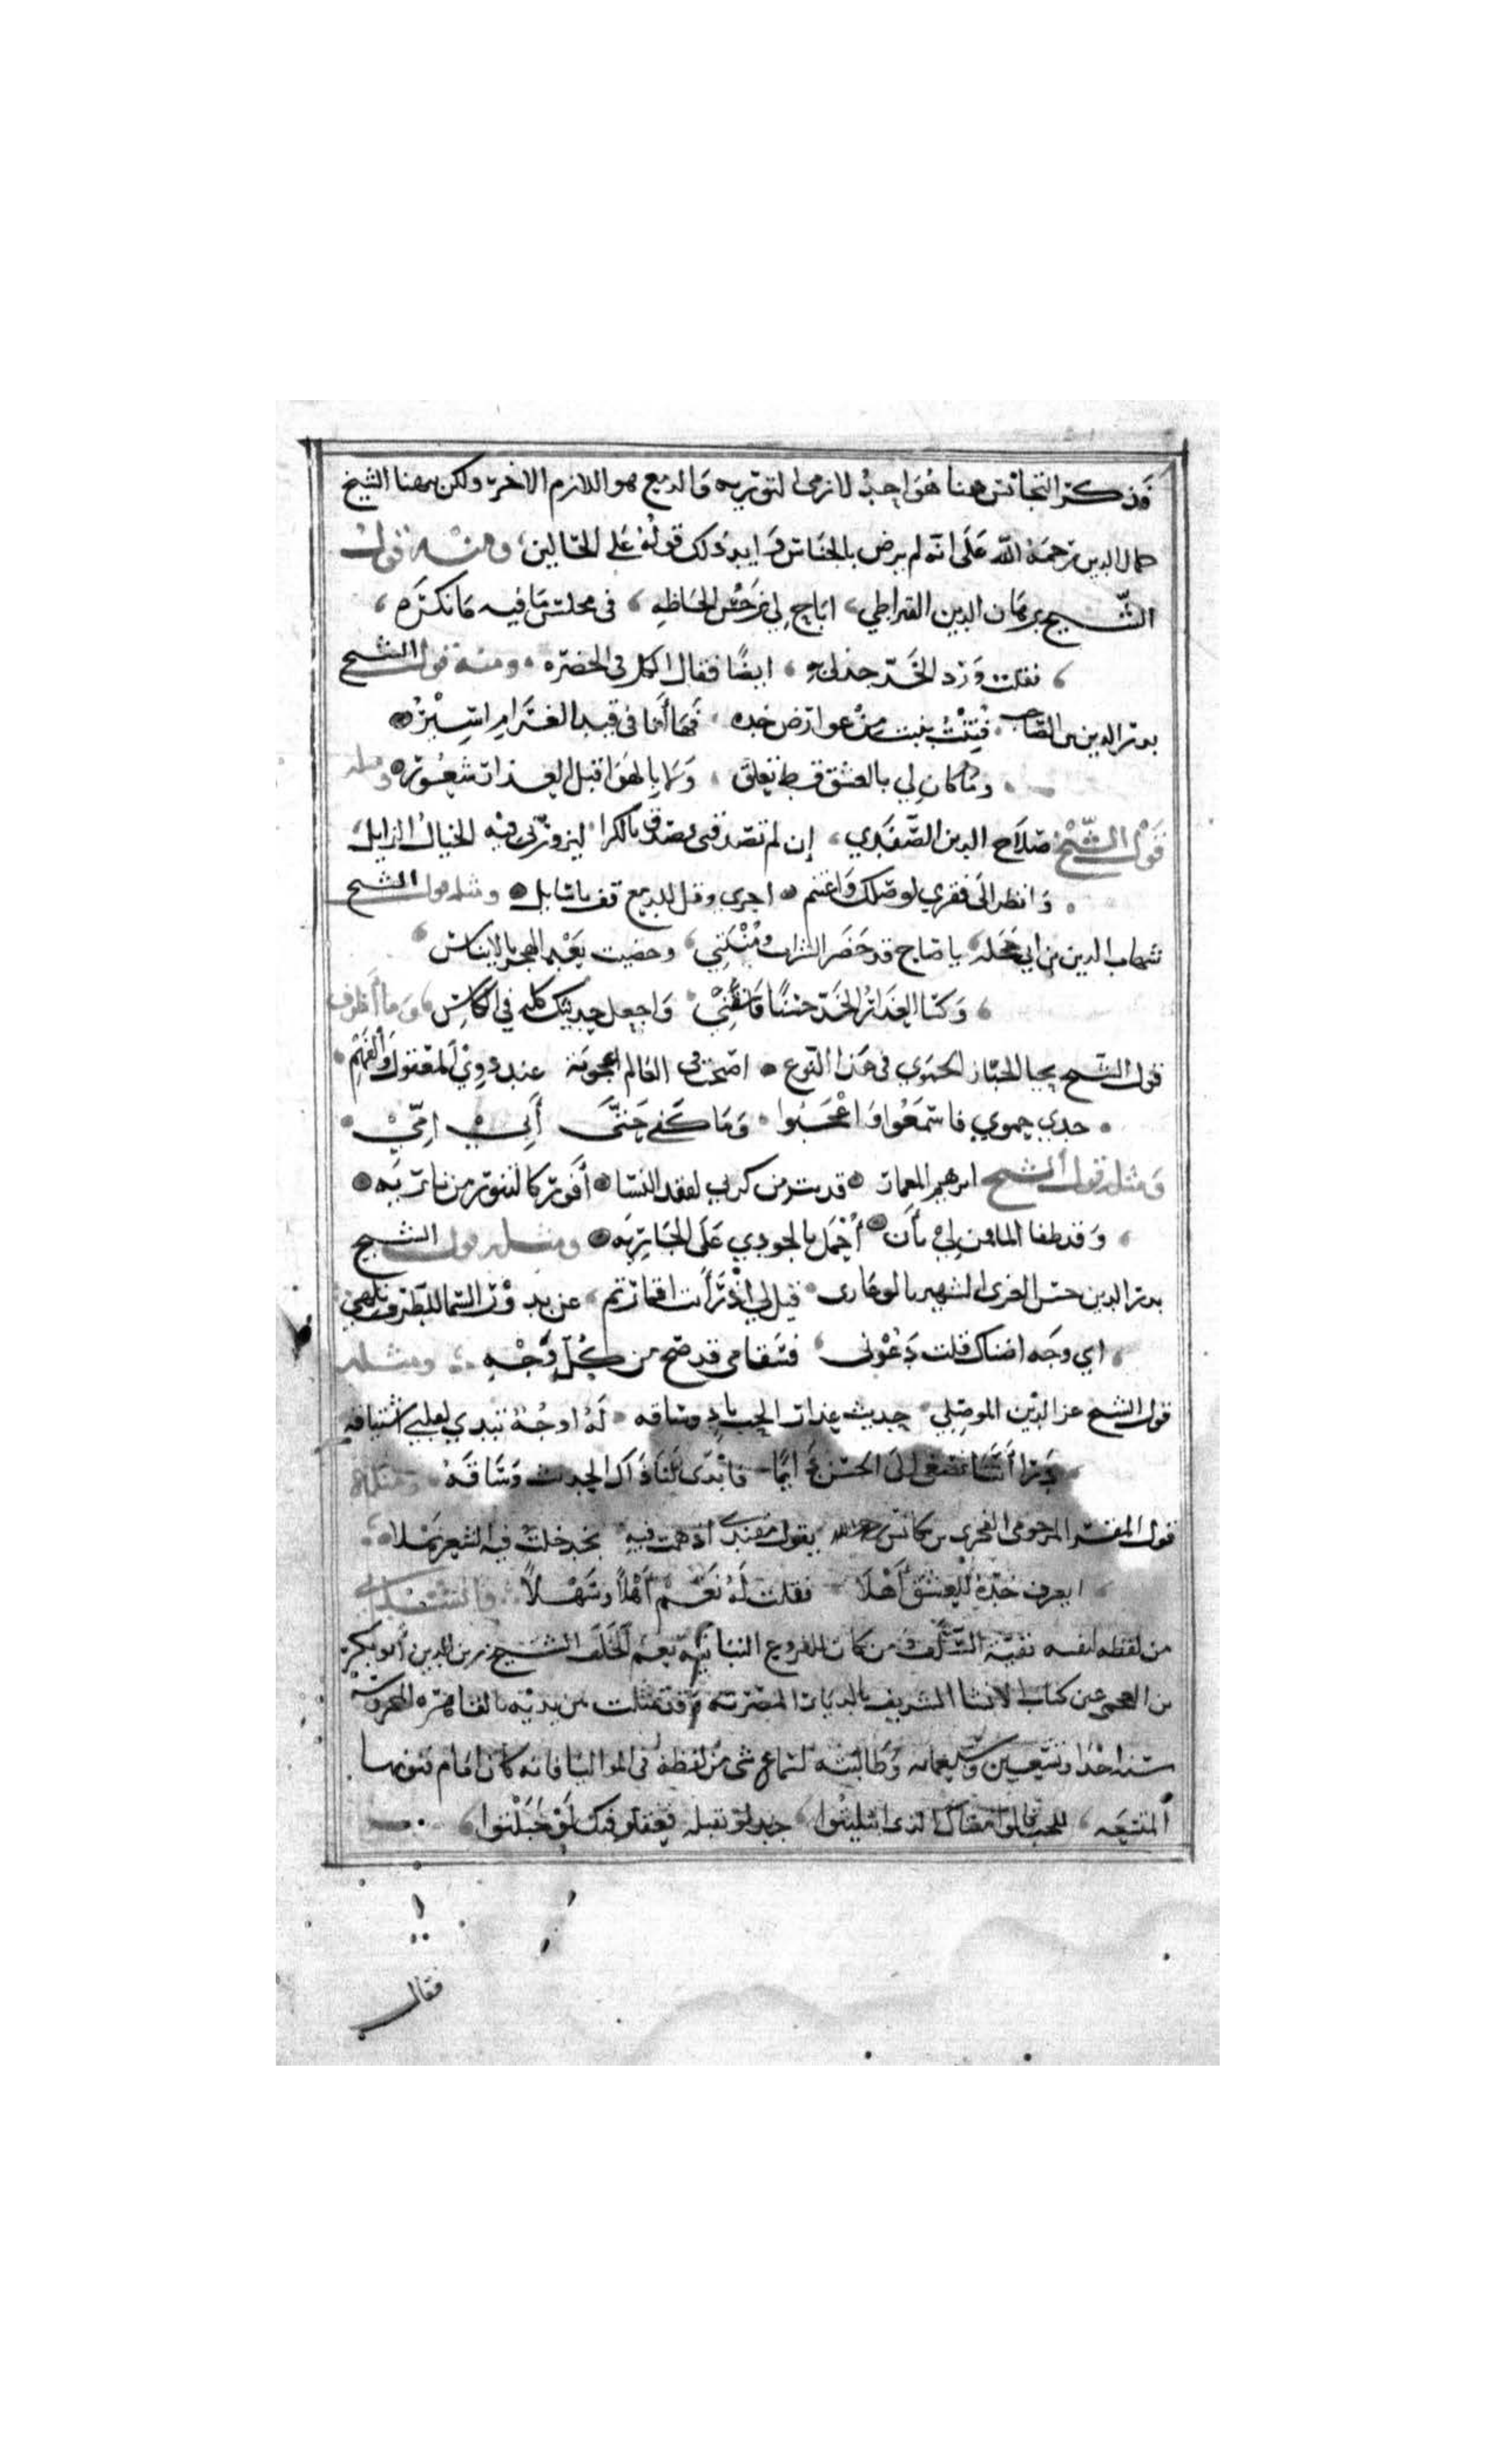 وذكر التجانس هنا هو احد لازمى التورية والدمع هو اللازم الاخر ولكن بهنا الشيخ
جمال الدين رحمه الله على انه لم يرض بالجناس ذلك قوله على الحالين ومنه قول
الشيخ برهان الدين القيراطي اباح لي نرجس الحاظه في مجلس ما فيه ما نكره
فقلت ورد الخد جد لي به ايضا فقال الكل في الحضره ومنه قول الشيخ
بدر الدين بن الصاحب فتنت بنبت من عوارض خده فها أنا في قيد الغرام اسيره
وما كان لي بالعشق قط تعلق ولا بالهوا قبل العذار شعوره ومثله
قول الشيخ صلاح الدين الصفدي إن لم تصدقنى تصدق بالكرا ليزورنى فيه الخيال الزايل
وانظر الى فقري لوصلك واغتنم اجري وقل للدمع قف يا سايل ومثله قول الشيخ
شهاب الدين بن ابي حجله يا صاح قد حضر الشراب ومنيتي وحضيت بعد الهجر بالايناس
وكسا العذار الخد حسنا فاسقني واجعل حديثك كله في الكاس وما أظرف
قول الشيخ يحيا الخباز الحموي في هذا النوع اصبحت في العالم اعجوبة عند ذوي المعقول والفهم
جدي حموي فاسمعوا واعجبوا وما كفى حتى أبي امي
ومثله قول الشيخ ابرهيم المعمار قد بت من كربي لفقد النسا أفور كالتنور من ناريه
وقد طفا الما من لي بأن أحمل بالجودي على الجاريه ومثله قول الشيخ
بدر الدين حسن الغزى الشهير بالزغارى قيل لي اذ رأيت اقمار تم عن بدور السما للطرف تلهي
اي وجه اضناك قلت دعوني فسقامى قد صح من كل وجه ومثله
قول الشيخ عز الدين الموصلي حديث عذار الحب باد وساقه له اوجه تبدي لقلبي اشتياقه
قرا أنسا نصغى الى الحسن فابدى لنا ذاك الحديث وساقه ومثله
قول المقر المرحومى الفخرى بن مكانس يقول مفندى اذ همت فيه بخد خلت فيه الشعر نملا
ايعرف خده للعشق أهلا فقلت له نعم أهلا وسهلا وانشدنى
من لفظه لنفسه بقية السلف ومن كان للفروع النباتية نعم الخلف الشيخ زين الدين أبو بكر
بن العجمى عين كتاب الانشا الشريف بالديار المصرية وقد تمثلت بين يديه بالقاهره المحروسة
سنة احدا وتسعين وسبعمايه وطالبته لسماع شى من لفظه فى المواليا فانه كان امام فنونها
المتبعه للحب قالوا معناك الذى ابليتوا جد لو تقبله فعقلو فيك لو خبلتوا
فقال